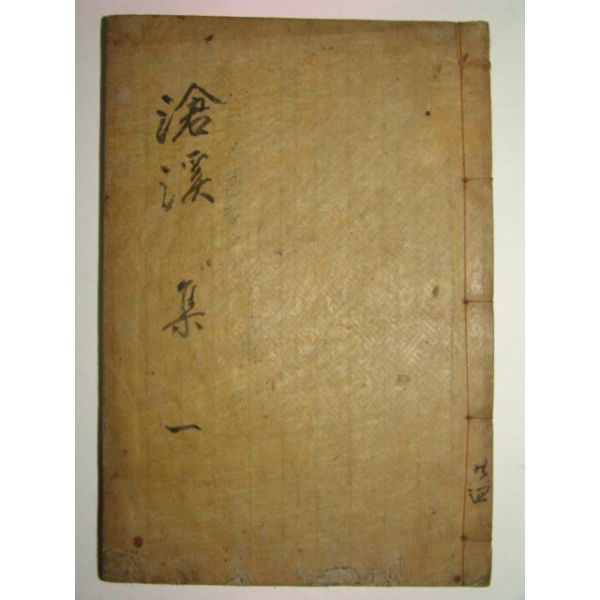 滄溪 集 一
共四